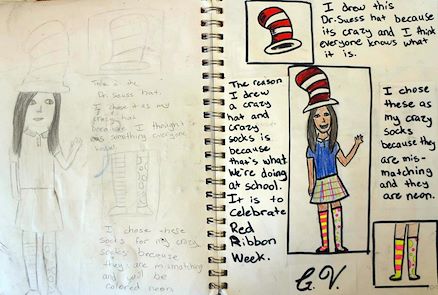 This is the
Dr. Suess hat.
I chose it as my
crazy hat
because I thought
was something everyone
knows.
I chose these
socks for my crazy
socks because
they are mismatching
and will be
colored neon
I drew this
Dr. Suess hat because
its crazy and I think
everyone knows what
it is.
The reason
I drew
a crazy
hat and
crazy
socks is
because
that's what
we're doing
at school.
It is to
celebrate
Red
Ribbon
Week.
I chose
these as
my crazy
socks
because
they are
mis-
matching
and they
are neon.
G.V.